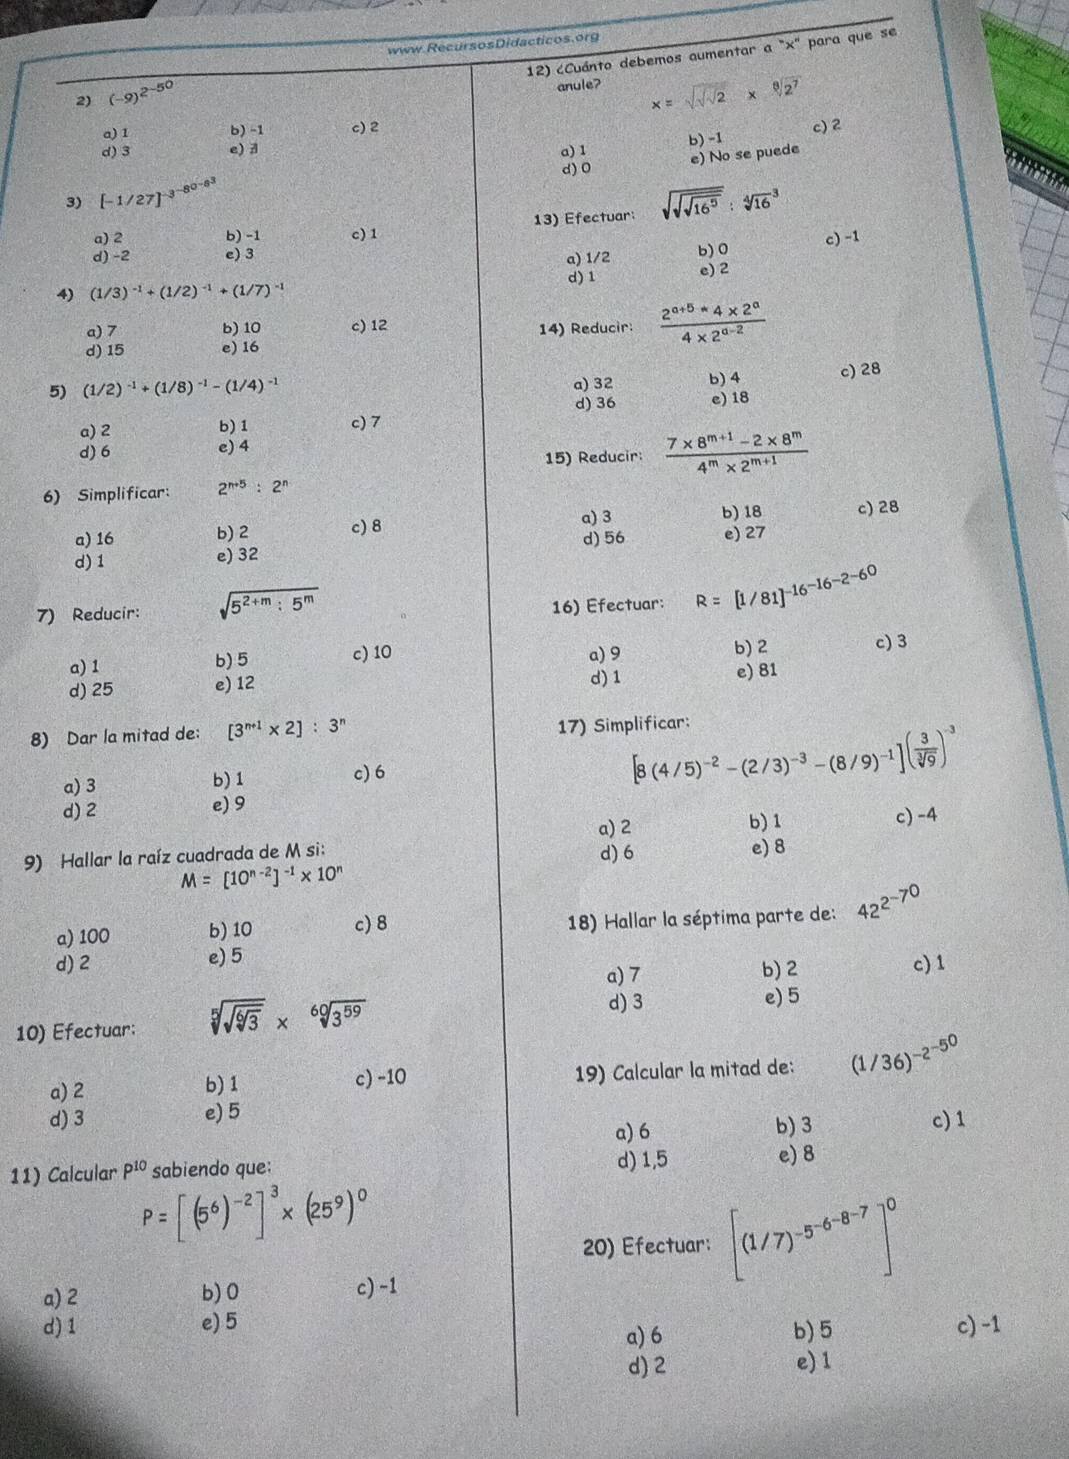 www.RecursosDidacticos.org
2) (-9)^2^-5^0
a) 1 b) -1 c) 2
d) 3 e) ∄
3) [-1/27]^-3^-8^0-8^3
a) 2 b) -1 c) 1
d) -2 e) 3
4) (1/3)^-1 + (1/2)^-1 + (1/7)^-1
a) 7 b) 10 c) 12
d) 15 e) 16
5) (1/2)^-1 + (1/8)^-1 - (1/4)^-1
a) 2 b) 1 c) 7
d) 6 e) 4
6) Simplificar: 2^n+5 : 2^n
a) 16 b) 2 c) 8
d) 1 e) 32
7) Reducir: √(5^2+m : 5^m)
a) 1 b) 5 c) 10
d) 25 e) 12
8) Dar la mitad de: [3^n+1 × 2] : 3^n
a) 3 b) 1 c) 6
d) 2 e) 9
9) Hallar la raíz cuadrada de M si:
M = [10^n-2]^-1 × 10^n
a) 100 b) 10 c) 8
d) 2 e) 5
10) Efectuar: ⁵√√⁶√3 × ⁶⁰√3^59
a) 2 b) 1 c) -10
d) 3 e) 5
11) Calcular P^10 sabiendo que:
P = [(5^6)^-2]^3 × (25^9)^0
a) 2 b) 0 c) -1
d) 1 e) 5
12) ¿Cuánto debemos aumentar a "x" para que se
anule?
x = √√√2 × ⁸√2^7
a) 1 b) -1 c) 2
d) 0 e) No se puede
13) Efectuar: √√√16^5 : ⁴√16^3
a) 1/2 b) 0 c) -1
d) 1 e) 2
14) Reducir: (2^a+5 * 4 × 2^a) / (4 × 2^a-2)
a) 32 b) 4 c) 28
d) 36 e) 18
15) Reducir: (7 × 8^m+1 - 2 × 8^m) / (4^m × 2^m+1)
a) 3 b) 18 c) 28
d) 56 e) 27
16) Efectuar: R = [1/81]^-16^-16^-2^-6^0
a) 9 b) 2 c) 3
d) 1 e) 81
17) Simplificar:
[8 (4/5)^-2 - (2/3)^-3 - (8/9)^-1] (3/³√9)^-3
a) 2 b) 1 c) -4
d) 6 e) 8
18) Hallar la séptima parte de: 42^2^-7^0
a) 7 b) 2 c) 1
d) 3 e) 5
19) Calcular la mitad de: (1/36)^-2^-5^0
a) 6 b) 3 c) 1
d) 1,5 e) 8
20) Efectuar: [(1/7)^-5^-6^-8^-7]^0
a) 6 b) 5 c) -1
d) 2 e) 1